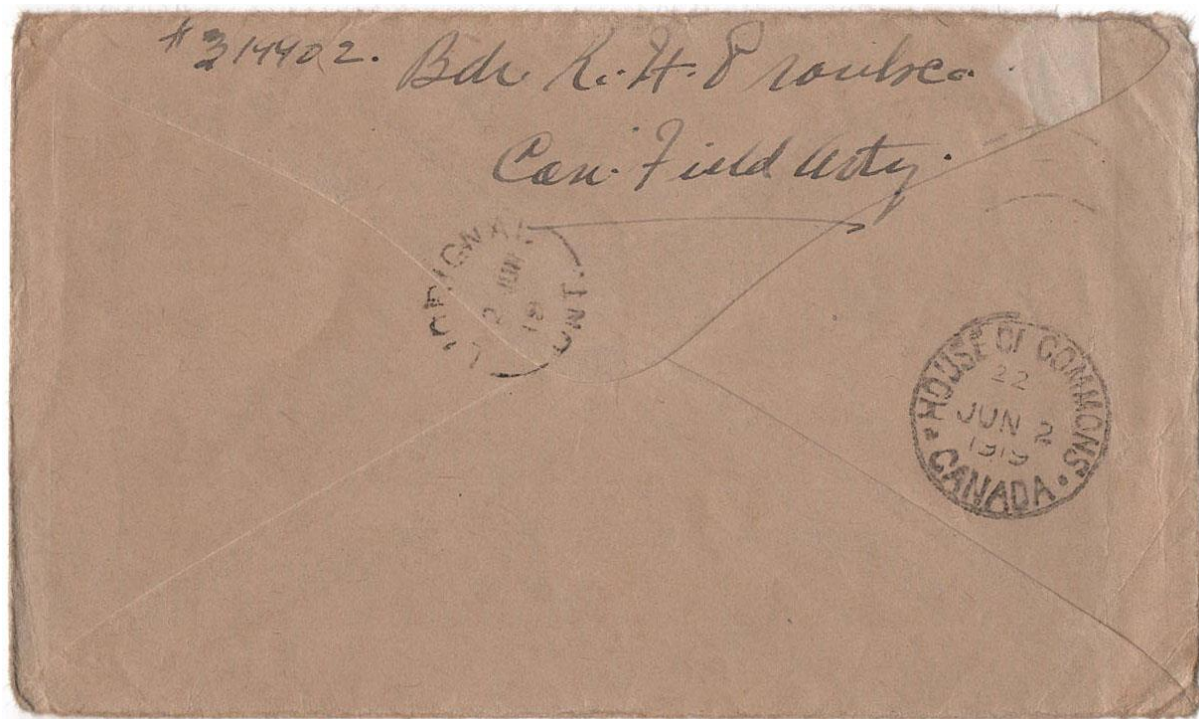 #317702. Bdr R. H. Proulx
Can. Field Arty.
L'ORIGNAL
2 JUN
19
ONT.
HOUSE OF COMMONS
22
JUN 2
1919
CANADA